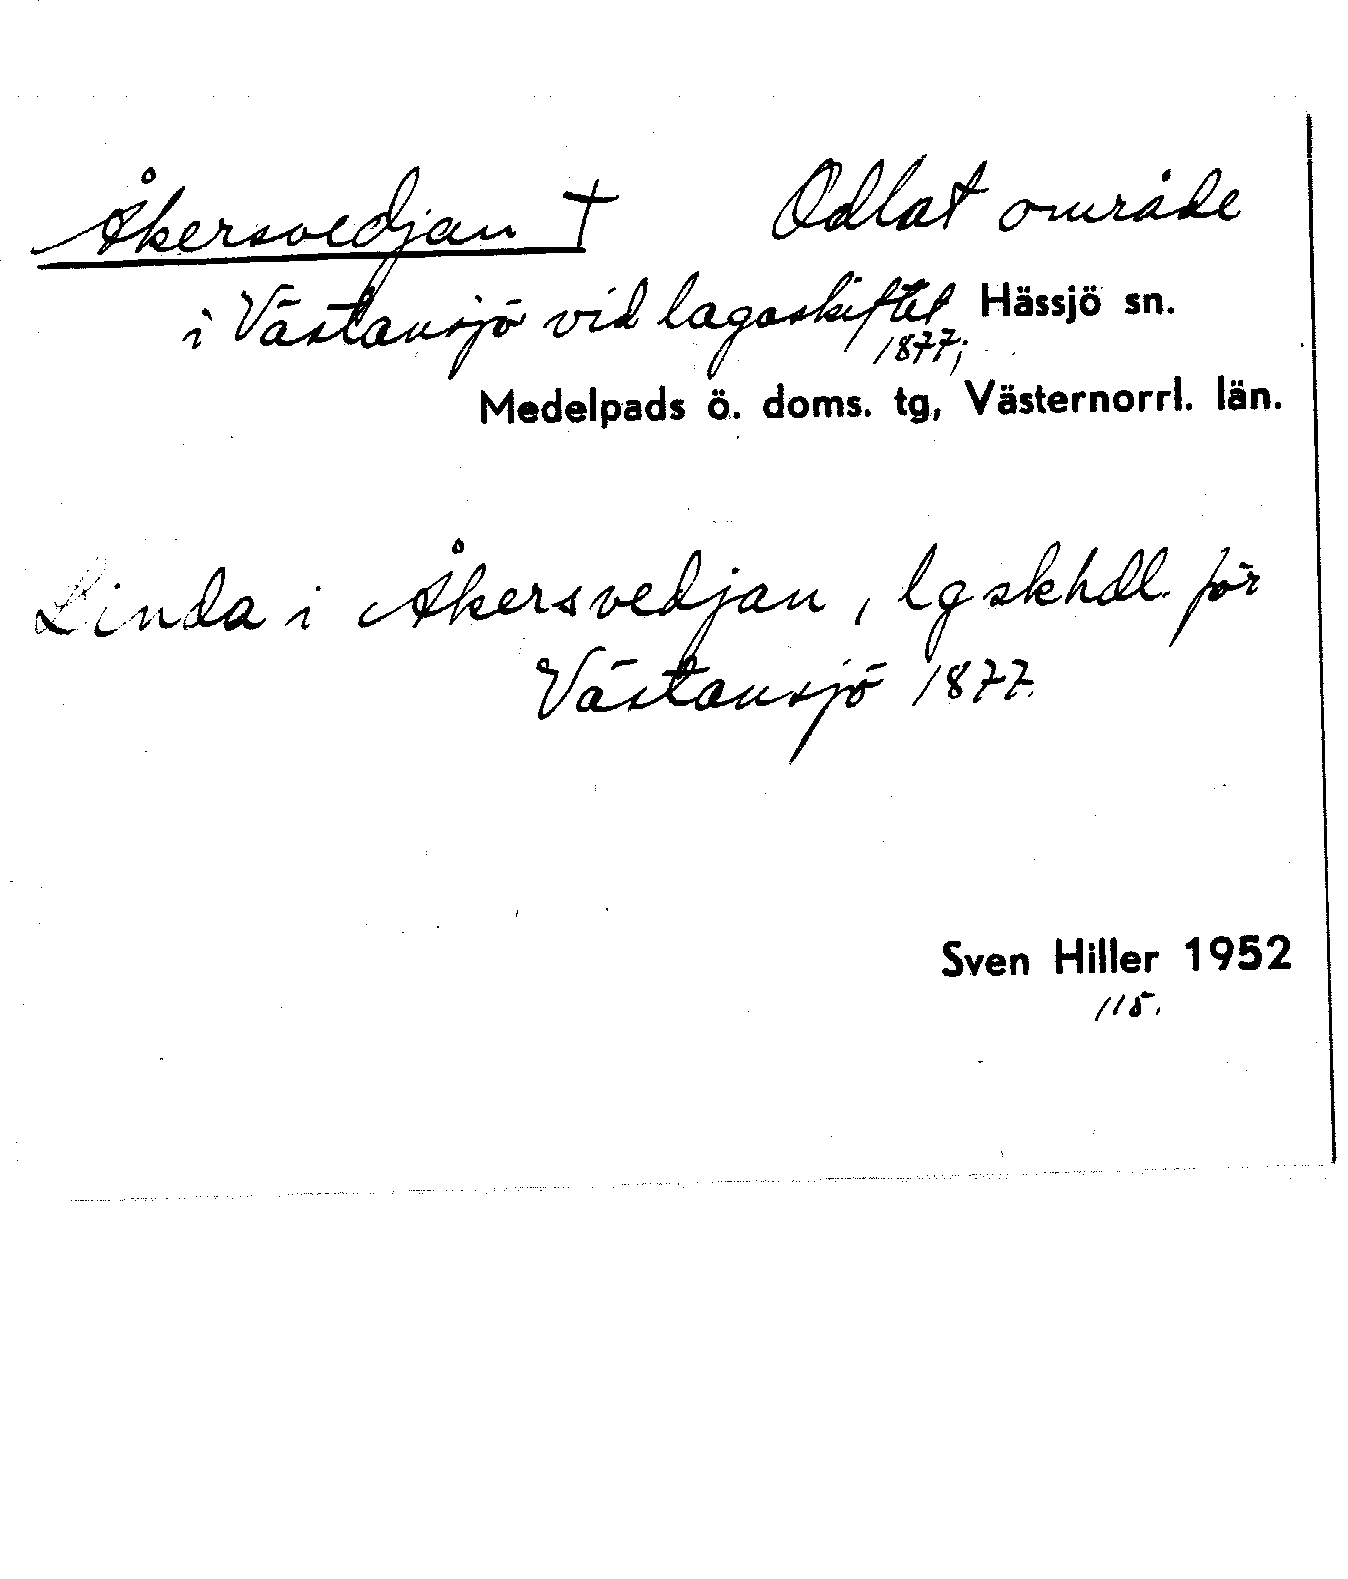 Åkersvedjan † Odlat område
i Västansjö vid lagaskiftet Hässjö sn.
1877;
Medelpads ö. doms. tg, Västernorrl. län.
Linda i Åkersvedjan, lgskhdl. för
Västansjö 1877.
Sven Hiller 1952
115.